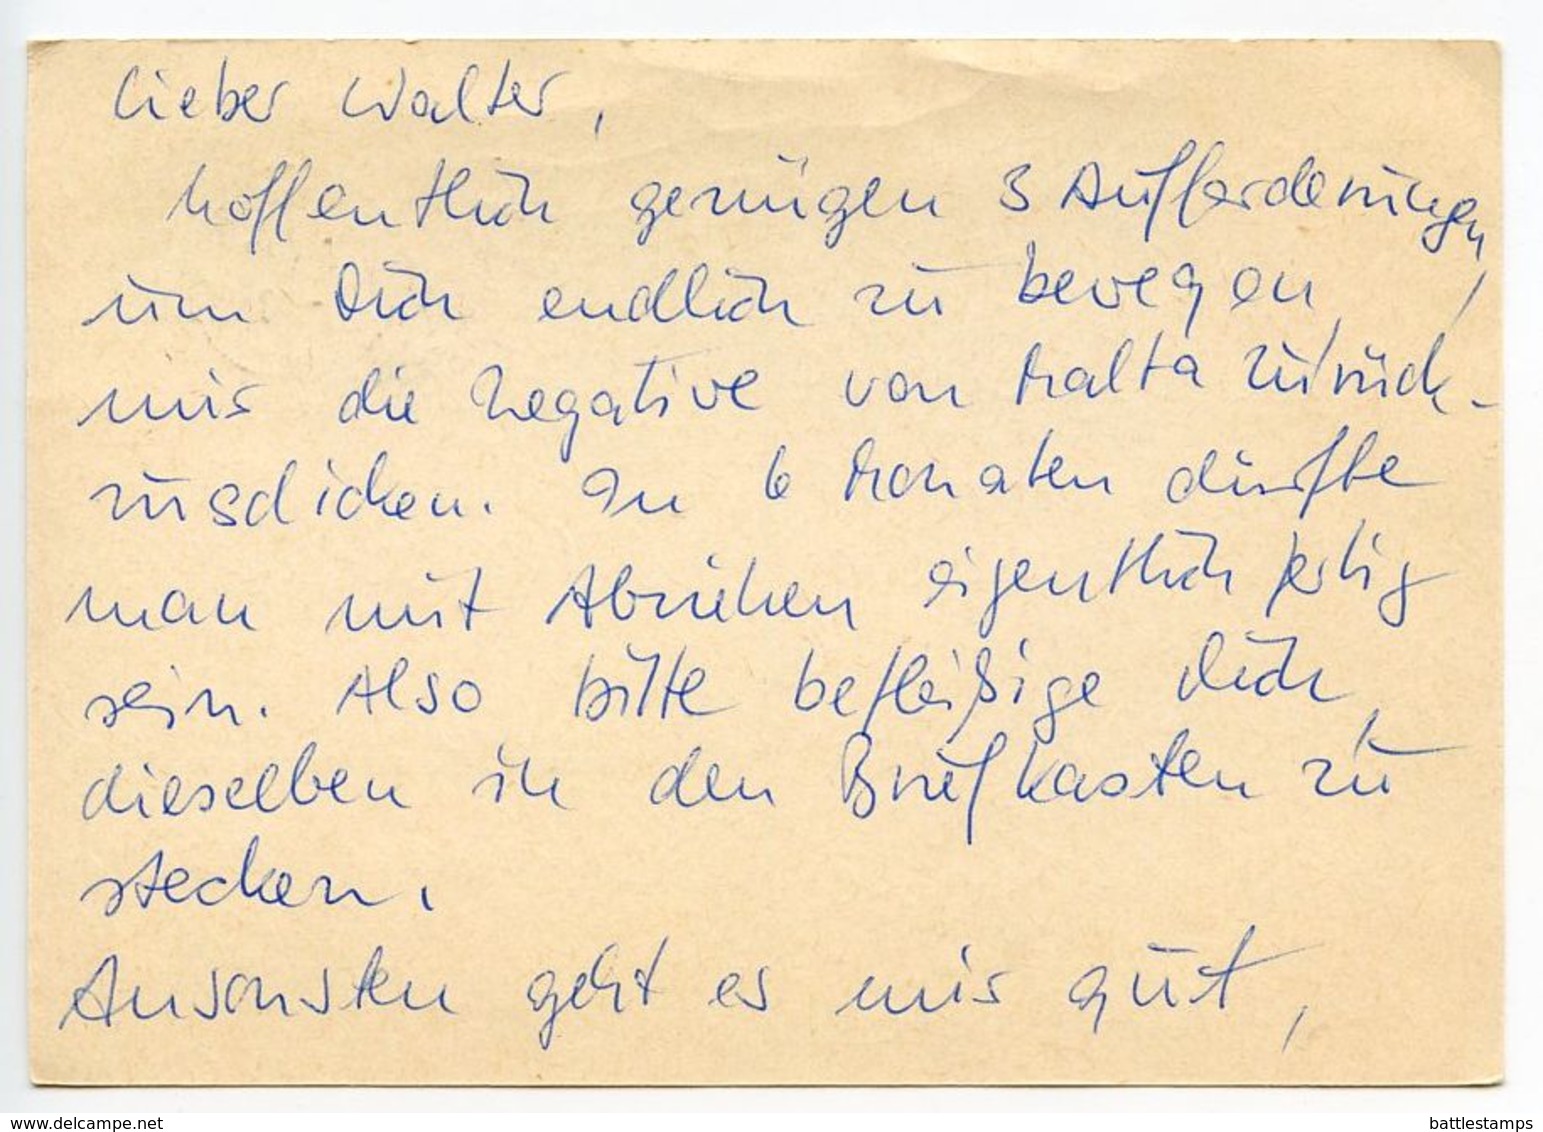 Lieber Walter,
hoffentlich genügen 3 Aufforderungen,
um Dich endlich zu bewegen,
mir die Negative von Malta zurück-
zuschicken. In 6 Monaten dürfte
man mit Abziehen eigentlich fertig
sein. Also bitte befleißige Dich,
dieselben in den Briefkasten zu
stecken.
Ansonsten geht es mir gut,
www.delcampe.net
battlestamps